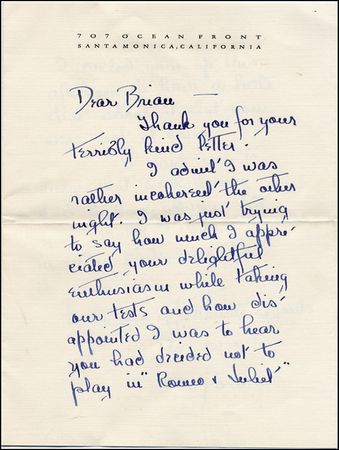 707 OCEAN FRONT
SANTA MONICA, CALIFORNIA
Dear Brian —
Thank you for your
terribly kind letter.
I admit I was
rather incoherent the other
night. I was just trying
to say how much I appre-
ciated your delightful
enthusiasm while taking
our tests and how dis-
appointed I was to hear
you had decided not to
play in "Romeo & Juliet"